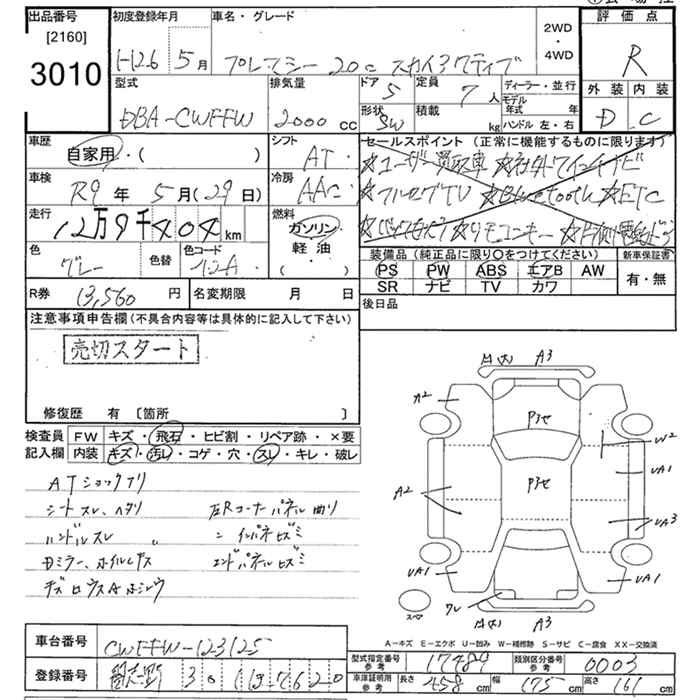 出品番号 初度登録年月 車名・グレード 2WD・4WD 評価点
[2160]
3010
H12.6 5月 プレマシー 20c スカイアクティブ R
型式 排気量 ドア 5 定員 7人 ディーラー・並行 外装 内装
モデル年式 年
DBA-CWFFW 2000cc 形状 SW 積載 kg ハンドル 左・右 D C
車歴 自家用・( ) シフト AT
セールスポイント(正常に機能するものに限ります)
☆ユーザー買取車 ☆社外ワイコナビ
車検 R9年 5月(29日) 冷房 AAC
☆フルセグTV ☆Bluetooth ☆ETC
走行 12万9千404km 燃料 ガソリン・軽油・( )
☆バックカメラ ☆リモコンキー ☆片側電動ドラ
色 グレー 色替 色コード 42A
装備品(純正品に限り○をつけてください) 新車保証書
PS PW ABS エアB AW 有・無
SR ナビ TV カワ
R券 13,560円 名変期限 月 日
後日品
注意事項申告欄(不具合内容等は具体的に記入して下さい)
売切スタート
修復歴 有 〔箇所 〕
検査員記入欄 FW キズ・飛石・ヒビ割・リペア跡・×要
内装 キズ・汚レ・コゲ・穴・スレ・キレ・破レ
ATショックアリ
シートスレ、ヘタリ 左Rコーナーパネル曲り
ハンドルスレ 〃 〃 インパネキズミ
Dミラー、ホイルキズ エンドパネルヒズミ
A3
A2
Pヨセ
W2
UA1
Pヨセ
A2
UA3
UA1
UA1
スペア
ワレ
A3
A-キズ E-エクボ U-凹み W-補修跡 S-サビ C-腐食 XX-交換済
車台番号 CWFFW-123125
型式指定番号参考 17489 類別区分番号参考 0003
登録番号 301 7620
車庫証明用参考 長さ 458cm 幅 175cm 高さ 161cm